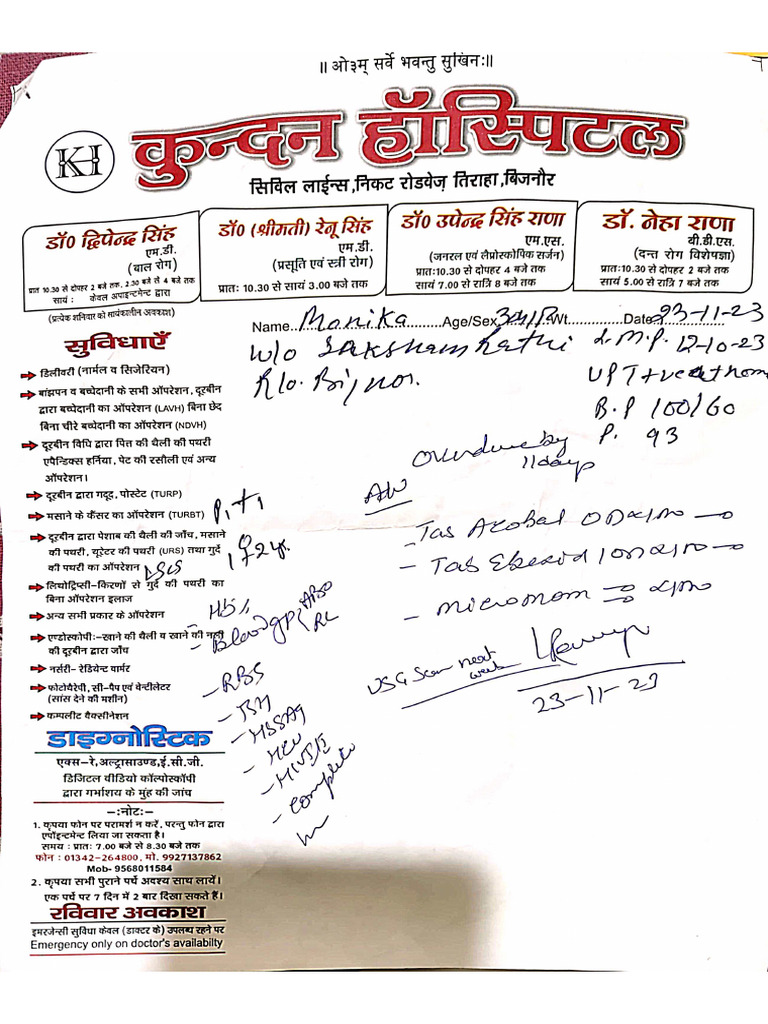 ॥ ओ३म् सर्वे भवन्तु सुखिनः॥
KI
कुन्दन हॉस्पिटल
सिविल लाईन्स,निकट रोडवेज़ तिराहा,बिजनौर
डॉ0 द्विपेन्द्र सिंह
एम.डी.
(बाल रोग)
प्रातः 10.30 से दोपहर 2 बजे तक, 2.30 बजे से 4 बजे तक
सायं : केवल अपाइन्टमेन्ट द्वारा
(प्रत्येक शनिवार को सायंकालीन अवकाश)
डॉ0 (श्रीमती) रेनू सिंह
एम.डी.
(प्रसूति एवं स्त्री रोग)
प्रातः 10.30 से सायं 3.00 बजे तक
डॉ0 उपेन्द्र सिंह राणा
एम.एस.
(जनरल एवं लैप्रोस्कोपिक सर्जन)
प्रातः10.30 से दोपहर 4 बजे तक
सायं 7.00 से रात्रि 8 बजे तक
डॉ. नेहा राणा
बी.डी.एस.
(दन्त रोग विशेषज्ञा)
प्रातः10.30 से दोपहर 2 बजे तक
सायं 5.00 से रात्रि 7 बजे तक
Name..Monika..Age/Sex 34/F Wt......Date 23-11-23
w/o Saksham Rathi
R/o. Bijnor.
L.M.P. 12-10-23
UPT +ve at home
B.P 100/60
P. 93
Overdue by
11 days
सुविधाएँ
डिलीवरी (नार्मल व सिजेरियन)
बांझपन व बच्चेदानी के सभी ऑपरेशन, दूरबीन
द्वारा बच्चेदानी का ऑपरेशन (LAVH) बिना छेद
बिना चीरे बच्चेदानी का ऑपरेशन (NDVH)
दूरबीन विधि द्वारा पित्त की थैली की पथरी
एपैन्डिक्स हर्निया, पेट की रसौली एवं अन्य
ऑपरेशन।
दूरबीन द्वारा गदूद, पोस्टेट (TURP)
मसाने के कैंसर का ऑपरेशन (TURBT)
दूरबीन द्वारा पेशाब की थैली की जाँच, मसाने
की पथरी, यूरेटर की पथरी (URS) तथा गुर्दे
की पथरी का ऑपरेशन
लिथोट्रिप्सी-किरणों से गुर्दे की पथरी का
बिना ऑपरेशन इलाज
अन्य सभी प्रकार के ऑपरेशन
एण्डोस्कोपी:-खाने की थैली व खाने की नली
की दूरबीन द्वारा जाँच
नर्सरी- रेडियेन्ट वार्मर
फोटोथैरेपी, सी-पैप एवं वेन्टीलेटर
(सांस देने की मशीन)
कम्पलीट वैक्सीनेशन
P1+1
LSCS
- Hb%
- Blood gp ABO
Rh
- RBS
- TSH
- HBSAg
- HCV
- HIV I/II
- Complete
- Micronom
USG Scan next
week
23-11-23
डाइग्नोस्टिक
एक्स-रे,अल्ट्रासाउण्ड,ई.सी.जी.
डिजिटल वीडियो कॉल्पोस्कॉपी
द्वारा गर्भाशय के मुंह की जांच
-:नोट:-
1. कृपया फोन पर परामर्श न करें, परन्तु फोन द्वारा
एपॉइन्टमेन्ट लिया जा सकता है।
समय : प्रातः 7.00 बजे से 8.30 बजे तक
फोन : 01342-264800, मो. 9927137862
Mob- 9568011584
2. कृपया सभी पुराने पर्चे अवश्य साथ लायें।
एक पर्चे पर 7 दिन में 2 बार दिखा सकते हैं।
रविवार अवकाश
इमरजेन्सी सुविधा केवल (डाक्टर के) उपलब्ध रहने पर
Emergency only on doctor's availabilty